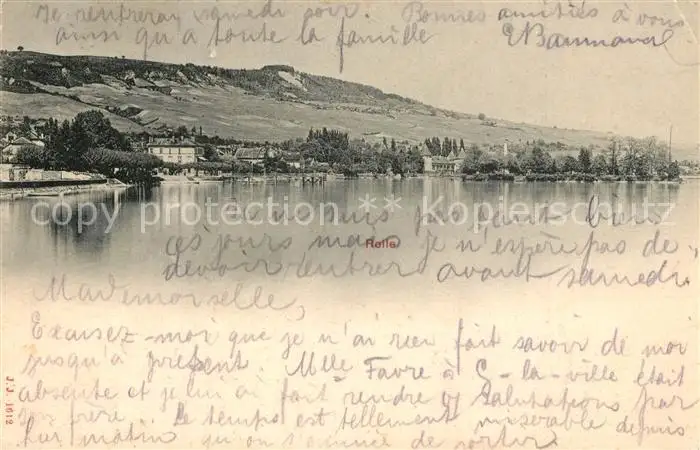 Je rentrerai samedi soir. Bonnes amitiés à vous
ainsi qu'à toute la famille EBaumann
copy protection Kepfer
Je ne suis pas tant bien
ces jours mais je n'espère pas de
Rolle
devoir rentrer avant samedi.
Mademoiselle,
Excusez-moi que je n'ai rien fait savoir de moi
jusqu'à présent. Mlle Favre à S-la-ville était
absente et je lui ai fait rendre salutations par
son frère. Le temps est tellement misérable depuis
mardi matin qu'on s'ennuie de sortir
J.J. 1612